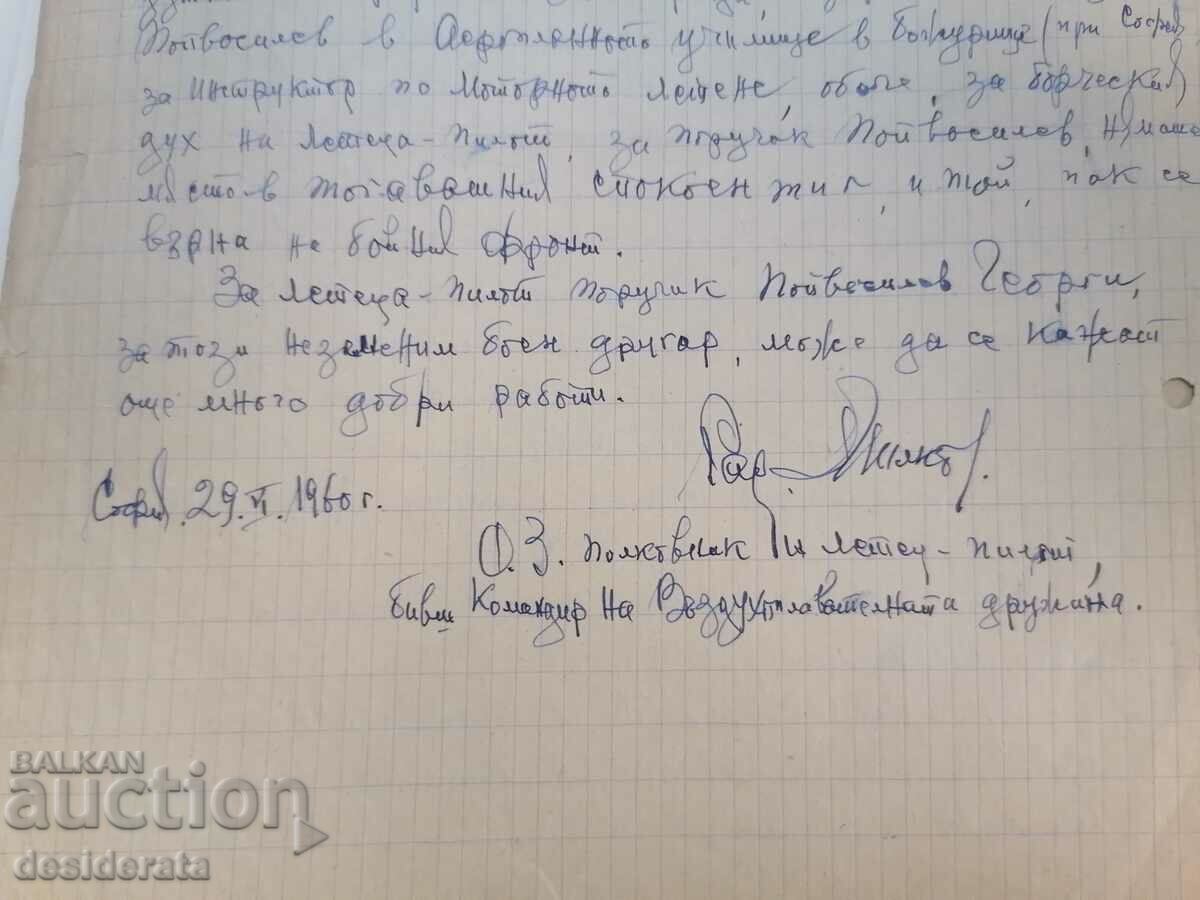 Попвасилев в Аеропланното училище в Божурище (при София)
за инструктор по моторното летене, обаче, за борческия
дух на летеца-пилот, за поручик Попвасилев, нямаше
място в тогавашния спокоен тил, и той, пак се
върна на бойния фронт.
За летеца-пилот поручик Попвасилов Георги,
за този незаменим боен другар, може да се кажат
още много добри работи.
София. 29.VI.1960 г.
О.З. полковник и летец-пилот,
бивш Командир на Въздухоплавателната дружина.
BALKAN
auction
desiderata